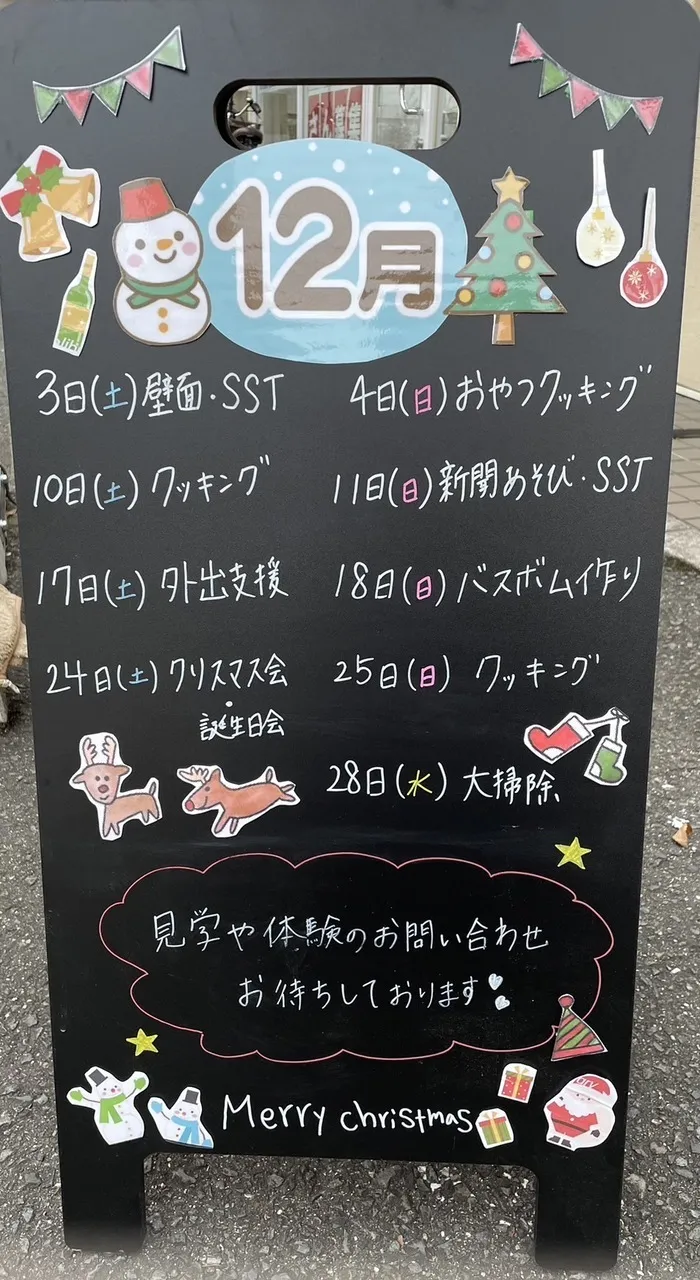 12月
3日(土)壁面・SST
4日(日)おやつクッキング
10日(土)クッキング
11日(日)新聞あそび・SST
17日(土)外出支援
18日(日)バスボム作り
24日(土)クリスマス会
・
誕生日会
25日(日)クッキング
28日(水)大掃除
見学や体験のお問い合わせ
お待ちしております
Merry christmas